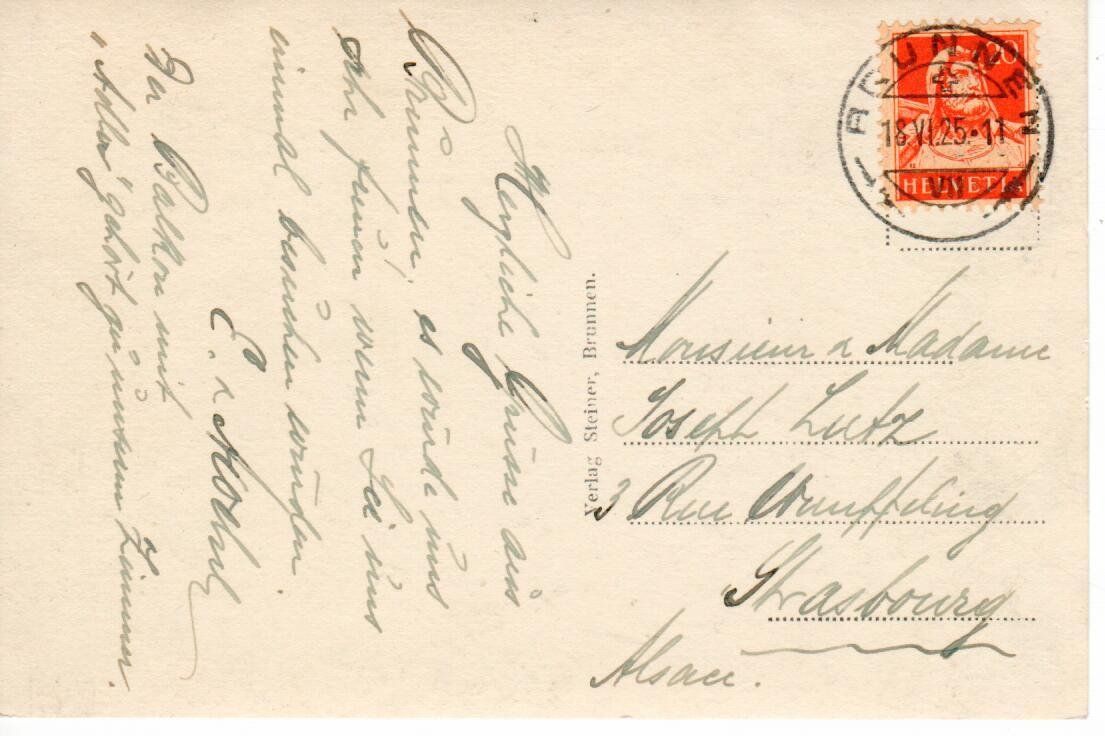 Herzliche Grüsse aus
Brunnen, es würde uns
sehr freuen wenn Sie uns
einmal besuchen würden
E. & Modul
Der Balkon mit
"Adler" gehört zu unserem Zimmer.
Verlag Steiner, Brunnen.
BRUNNEN
18.VI.25·11
VII
20
HELVETIA
Monsieur & Madame
Joseph Lutz
3 Rue Wimpfeling
Strasbourg
Alsace.